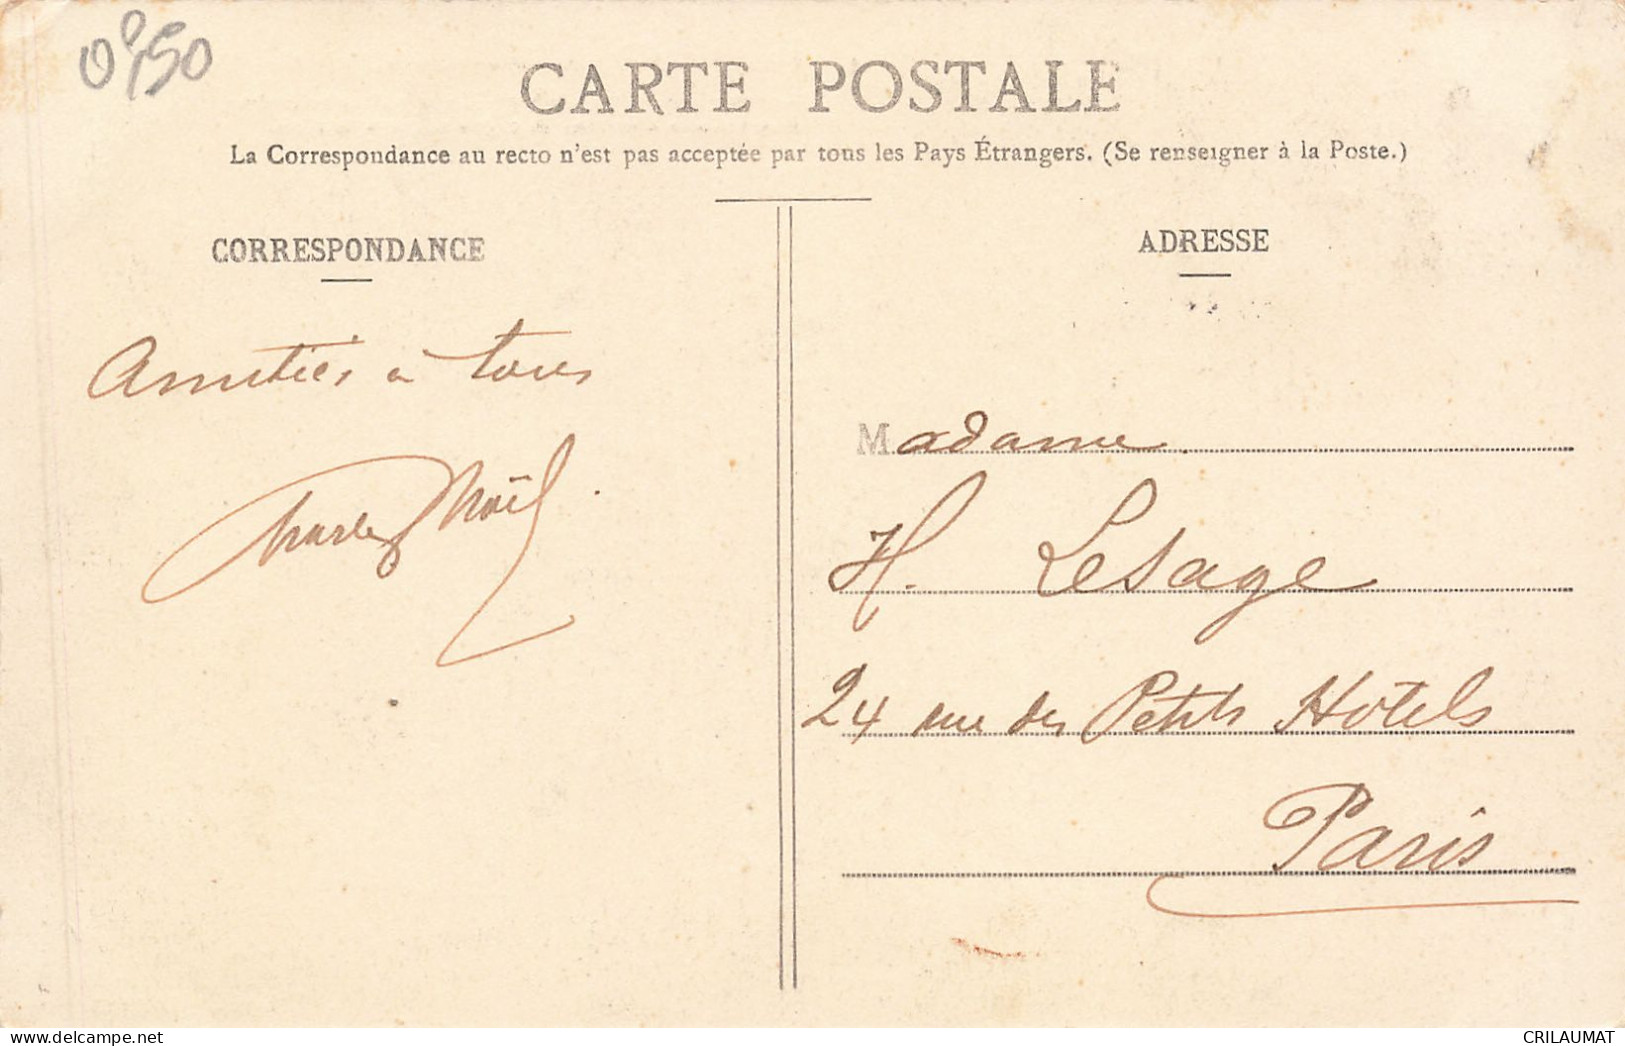 0,50
CARTE POSTALE
La Correspondance au recto n'est pas acceptée par tous les Pays Étrangers. (Se renseigner à la Poste.)
CORRESPONDANCE
ADRESSE
Amitiés à tous
Charles Noël
Madame
H. Lesage
24 rue des Petits Hôtels
Paris
www.delcampe.net
CRILAUMAT